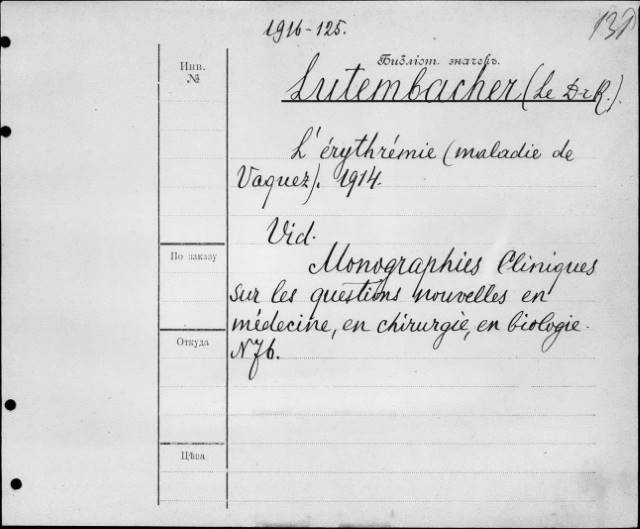 1916-125.
Библіот. значекъ.
Инв.
№
Lutembacher (Le Dr R.).
L'érythrémie (maladie de
Vaquez). 1914.
Vid.
Monographies Cliniques
sur les questions nouvelles en
médecine, en chirurgie, en biologie.
N 76.
По заказу
Откуда
Цѣна